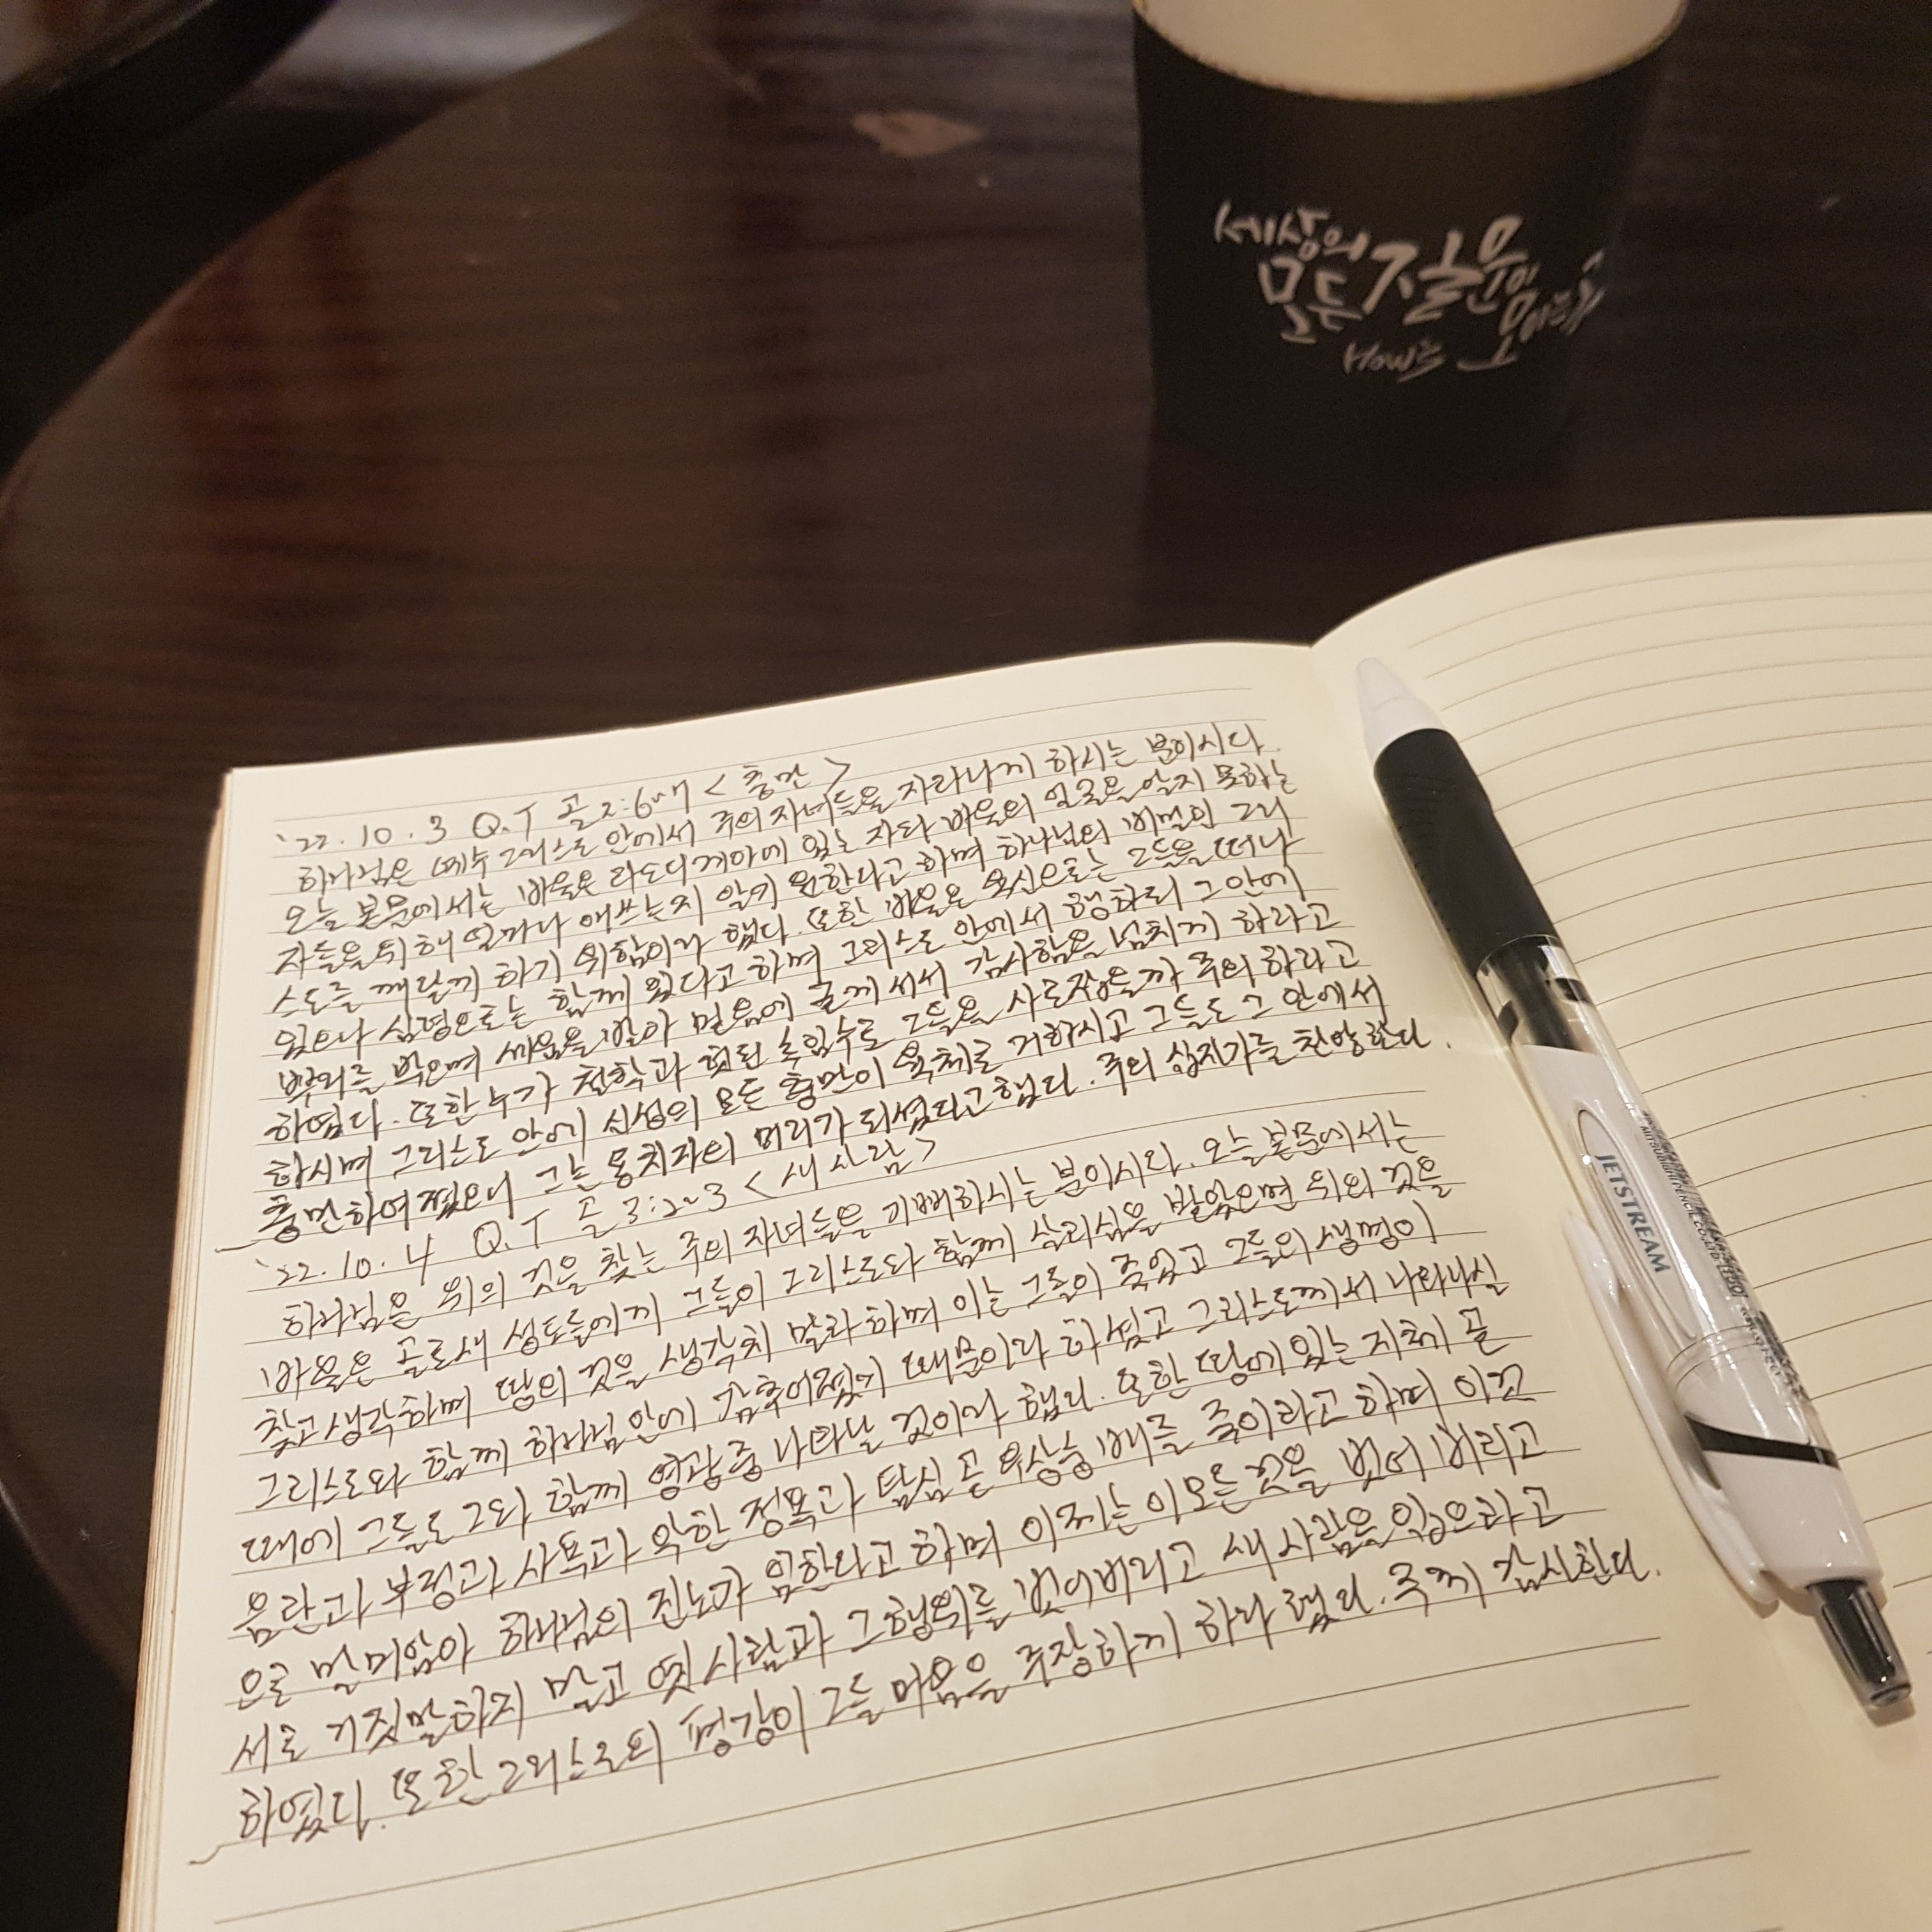 세상의
모든 질문의
How는
'22. 10. 3 Q.T 골 2:6~7 <충만>
하나님은 예수 그리스도 안에서 주의 자녀들을 자라나게 하시는 분이시다.
오늘 본문에서는 바울은 라오디게아에 있는 자와 바울의 얼굴을 알지 못하는
자들을 위해 얼마나 애쓰는지 알기 원한다고 하며 하나님의 비밀인 그리
스도를 깨닫게 하기 위함이라 했다. 또한 바울은 육신으로는 그들을 떠나
있으나 심령으로는 함께 있다고 하며 그리스도 안에서 행하되 그 안에
뿌리를 박으며 세움을 받아 믿음에 굳게 서서 감사함을 넘치게 하라고
하였다. 또한 누가 철학과 헛된 속임수로 그들을 사로잡을까 주의하라고
하시며 그리스도 안에 신성의 모든 충만이 육체로 거하시고 그들도 그 안에서
충만하여졌으니 그는 통치자의 머리가 되셨다고 했다. 주의 십자가를 찬양한다.
'22. 10. 4 Q.T 골 3:2~3 <새 사람>
하나님은 위의 것을 찾는 주의 자녀들을 기뻐하시는 분이시라. 오늘 본문에서는
바울은 골로새 성도들에게 그들이 그리스도와 함께 살리심을 받았으면 위의 것을
찾고 생각하며 땅의 것을 생각치 말라 하며 이는 그들이 죽었고 그들의 생명이
그리스도와 함께 하나님 안에 감추어졌기 때문이라 하셨고 그리스도께서 나타나실
때에 그들도 그와 함께 영광중 나타날 것이라 했다. 또한 땅에 있는 지체 곧
음란과 부정과 사욕과 악한 정욕과 탐심 곧 우상숭배를 죽이라고 하며 이것
으로 말미암아 하나님의 진노가 임한다고 하며 이제는 이 모든 것을 벗어 버리고
서로 거짓말하지 말고 옛 사람과 그 행위를 벗어버리고 새 사람을 입으라고
하였다. 또한 그리스도의 평강이 그들 마음을 주장하게 하라 했다. 주께 감사한다.
JETSTREAM